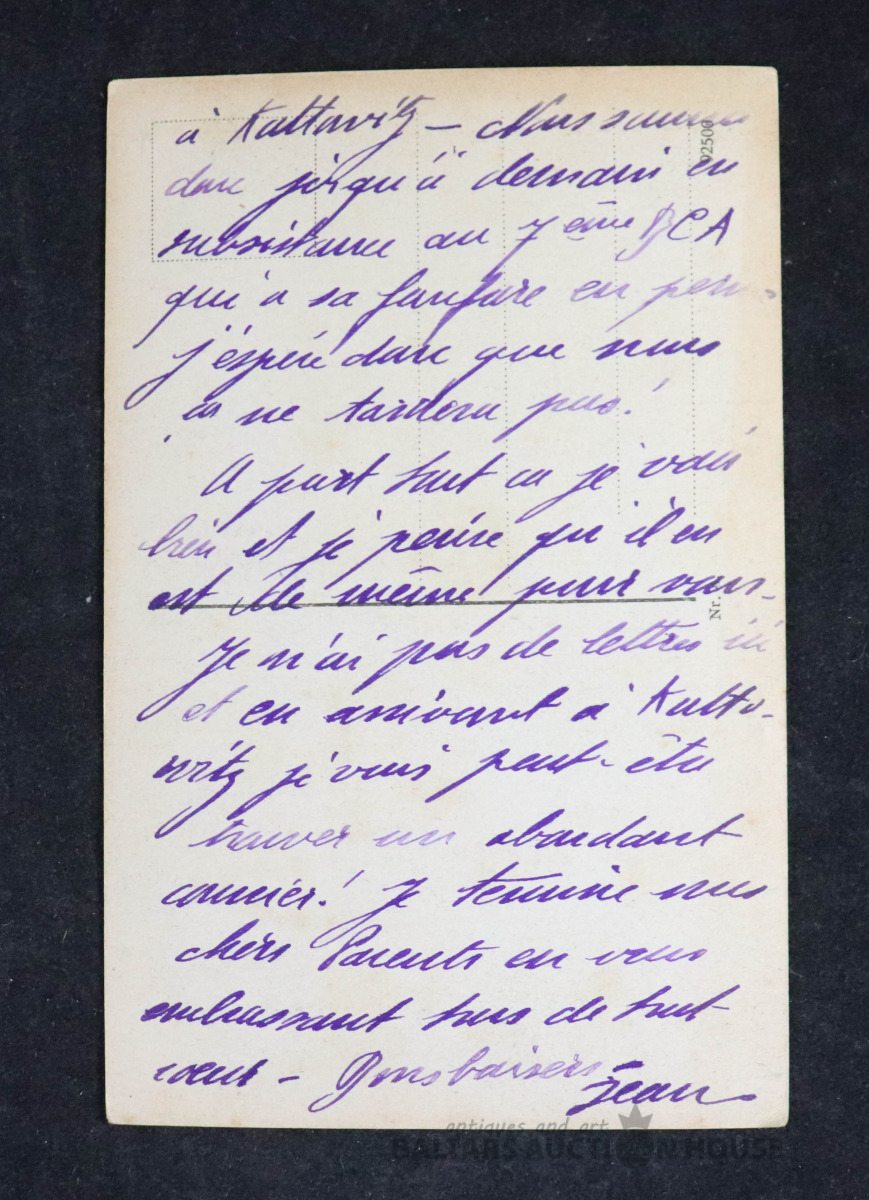 à Kattowitz — Nous sommes
donc jusqu'à demain en
subsistance au 7ème BCA
qui a sa fanfare en perm
j'espère donc que nous
ça ne tardera pas!
A part tout ça je vais
bien et je pense qu'il en
est de même pour vous.
Je n'ai pas de lettres ici
et en arrivant à Katto-
witz je vais peut-être
trouver un abondant
courrier! Je termine mes
chers Parents en vous
embrassant tous de tout
cœur — Bons baisers
Jean
92500
Nr.
antiques and art
BALTARS AUCTION HOUSE